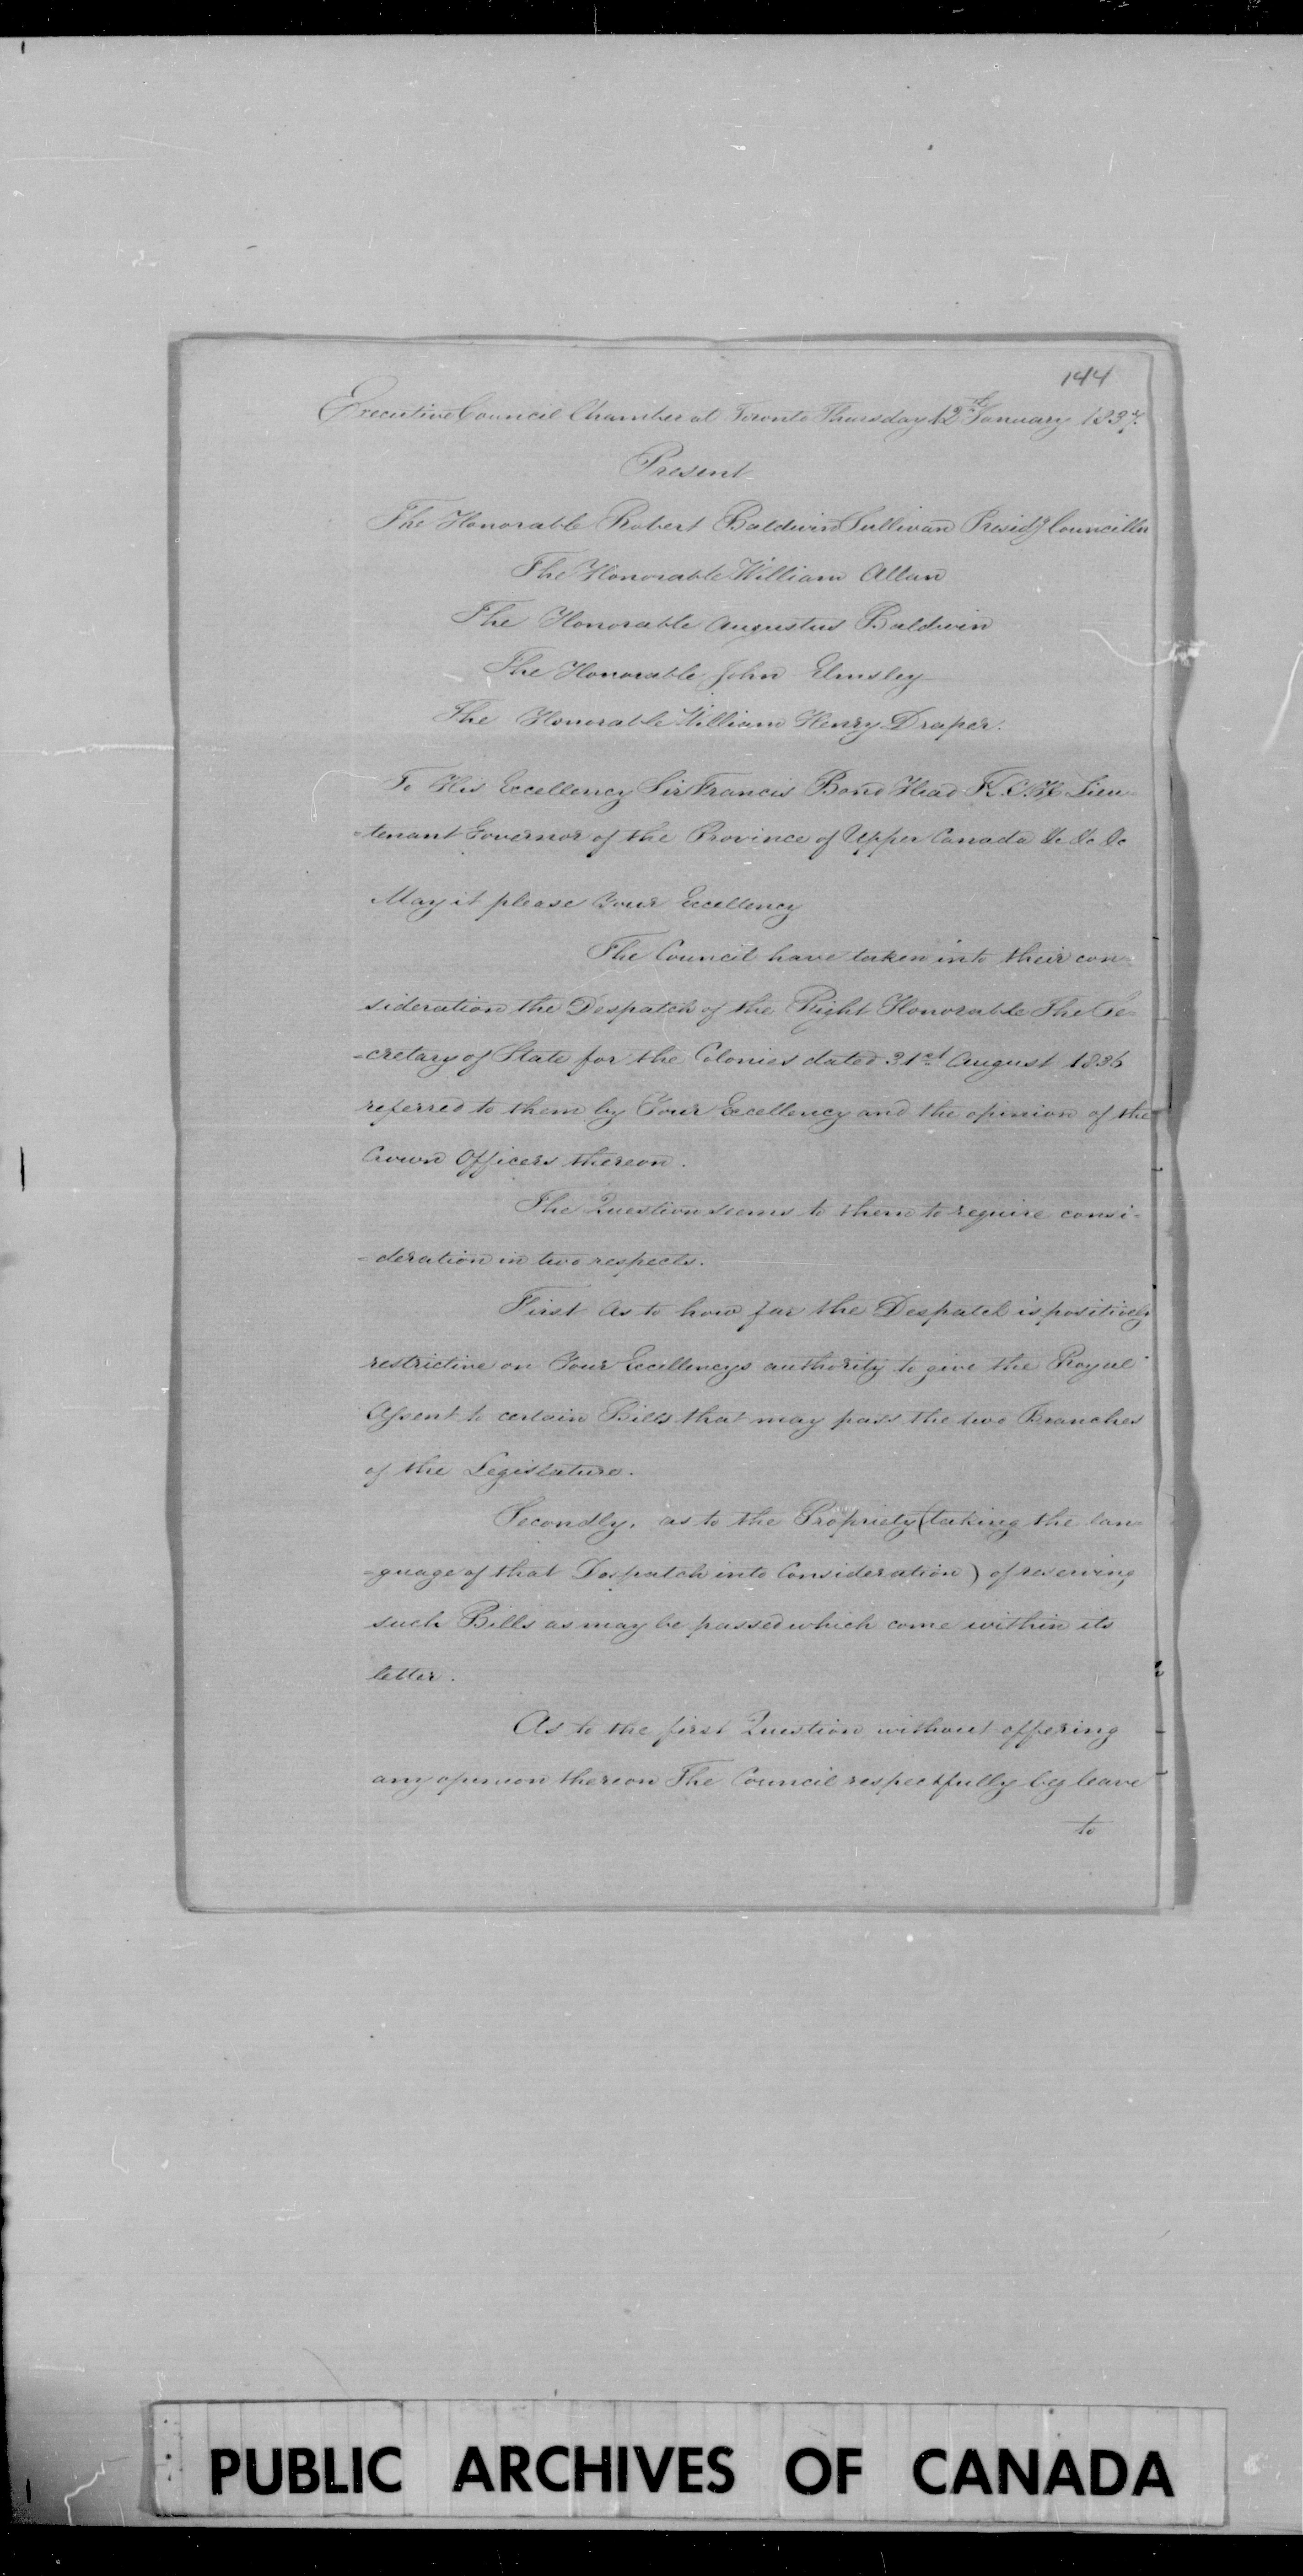 144
Executive Council Chamber at Toronto Thursday 12th January 1837.
Present
The Honorable Robert Baldwin Sullivan Presidg Councillor
The Honorable William Allan
The Honorable Augustus Baldwin
The Honorable John Elmsley
The Honorable William Henry Draper.
To His Excellency Sir Francis Bond Head K.C.H. Lieu-
-tenant Governor of the Province of Upper Canada &c &c &c
May it please Your Excellency
The Council have taken into their con-
sideration the Despatch of the Right Honorable The Se-
-cretary of State for the Colonies dated 31st August 1836
referred to them by Your Excellency and the opinion of the
Crown Officers thereon.
The Question seems to them to require consi-
-deration in two respects.
First As to how far the Despatch is positively
restrictive on Your Excellencys authority to give the Royal
Assent to certain Bills that may pass the two Branches
of the Legislature.
Secondly, as to the Propriety (taking the lan-
-guage of that Despatch into Consideration) of reserving
such Bills as may be passed which come within its
letter.
As to the first Question without offering
any opinion thereon The Council respectfully beg leave
to
PUBLIC ARCHIVES OF CANADA